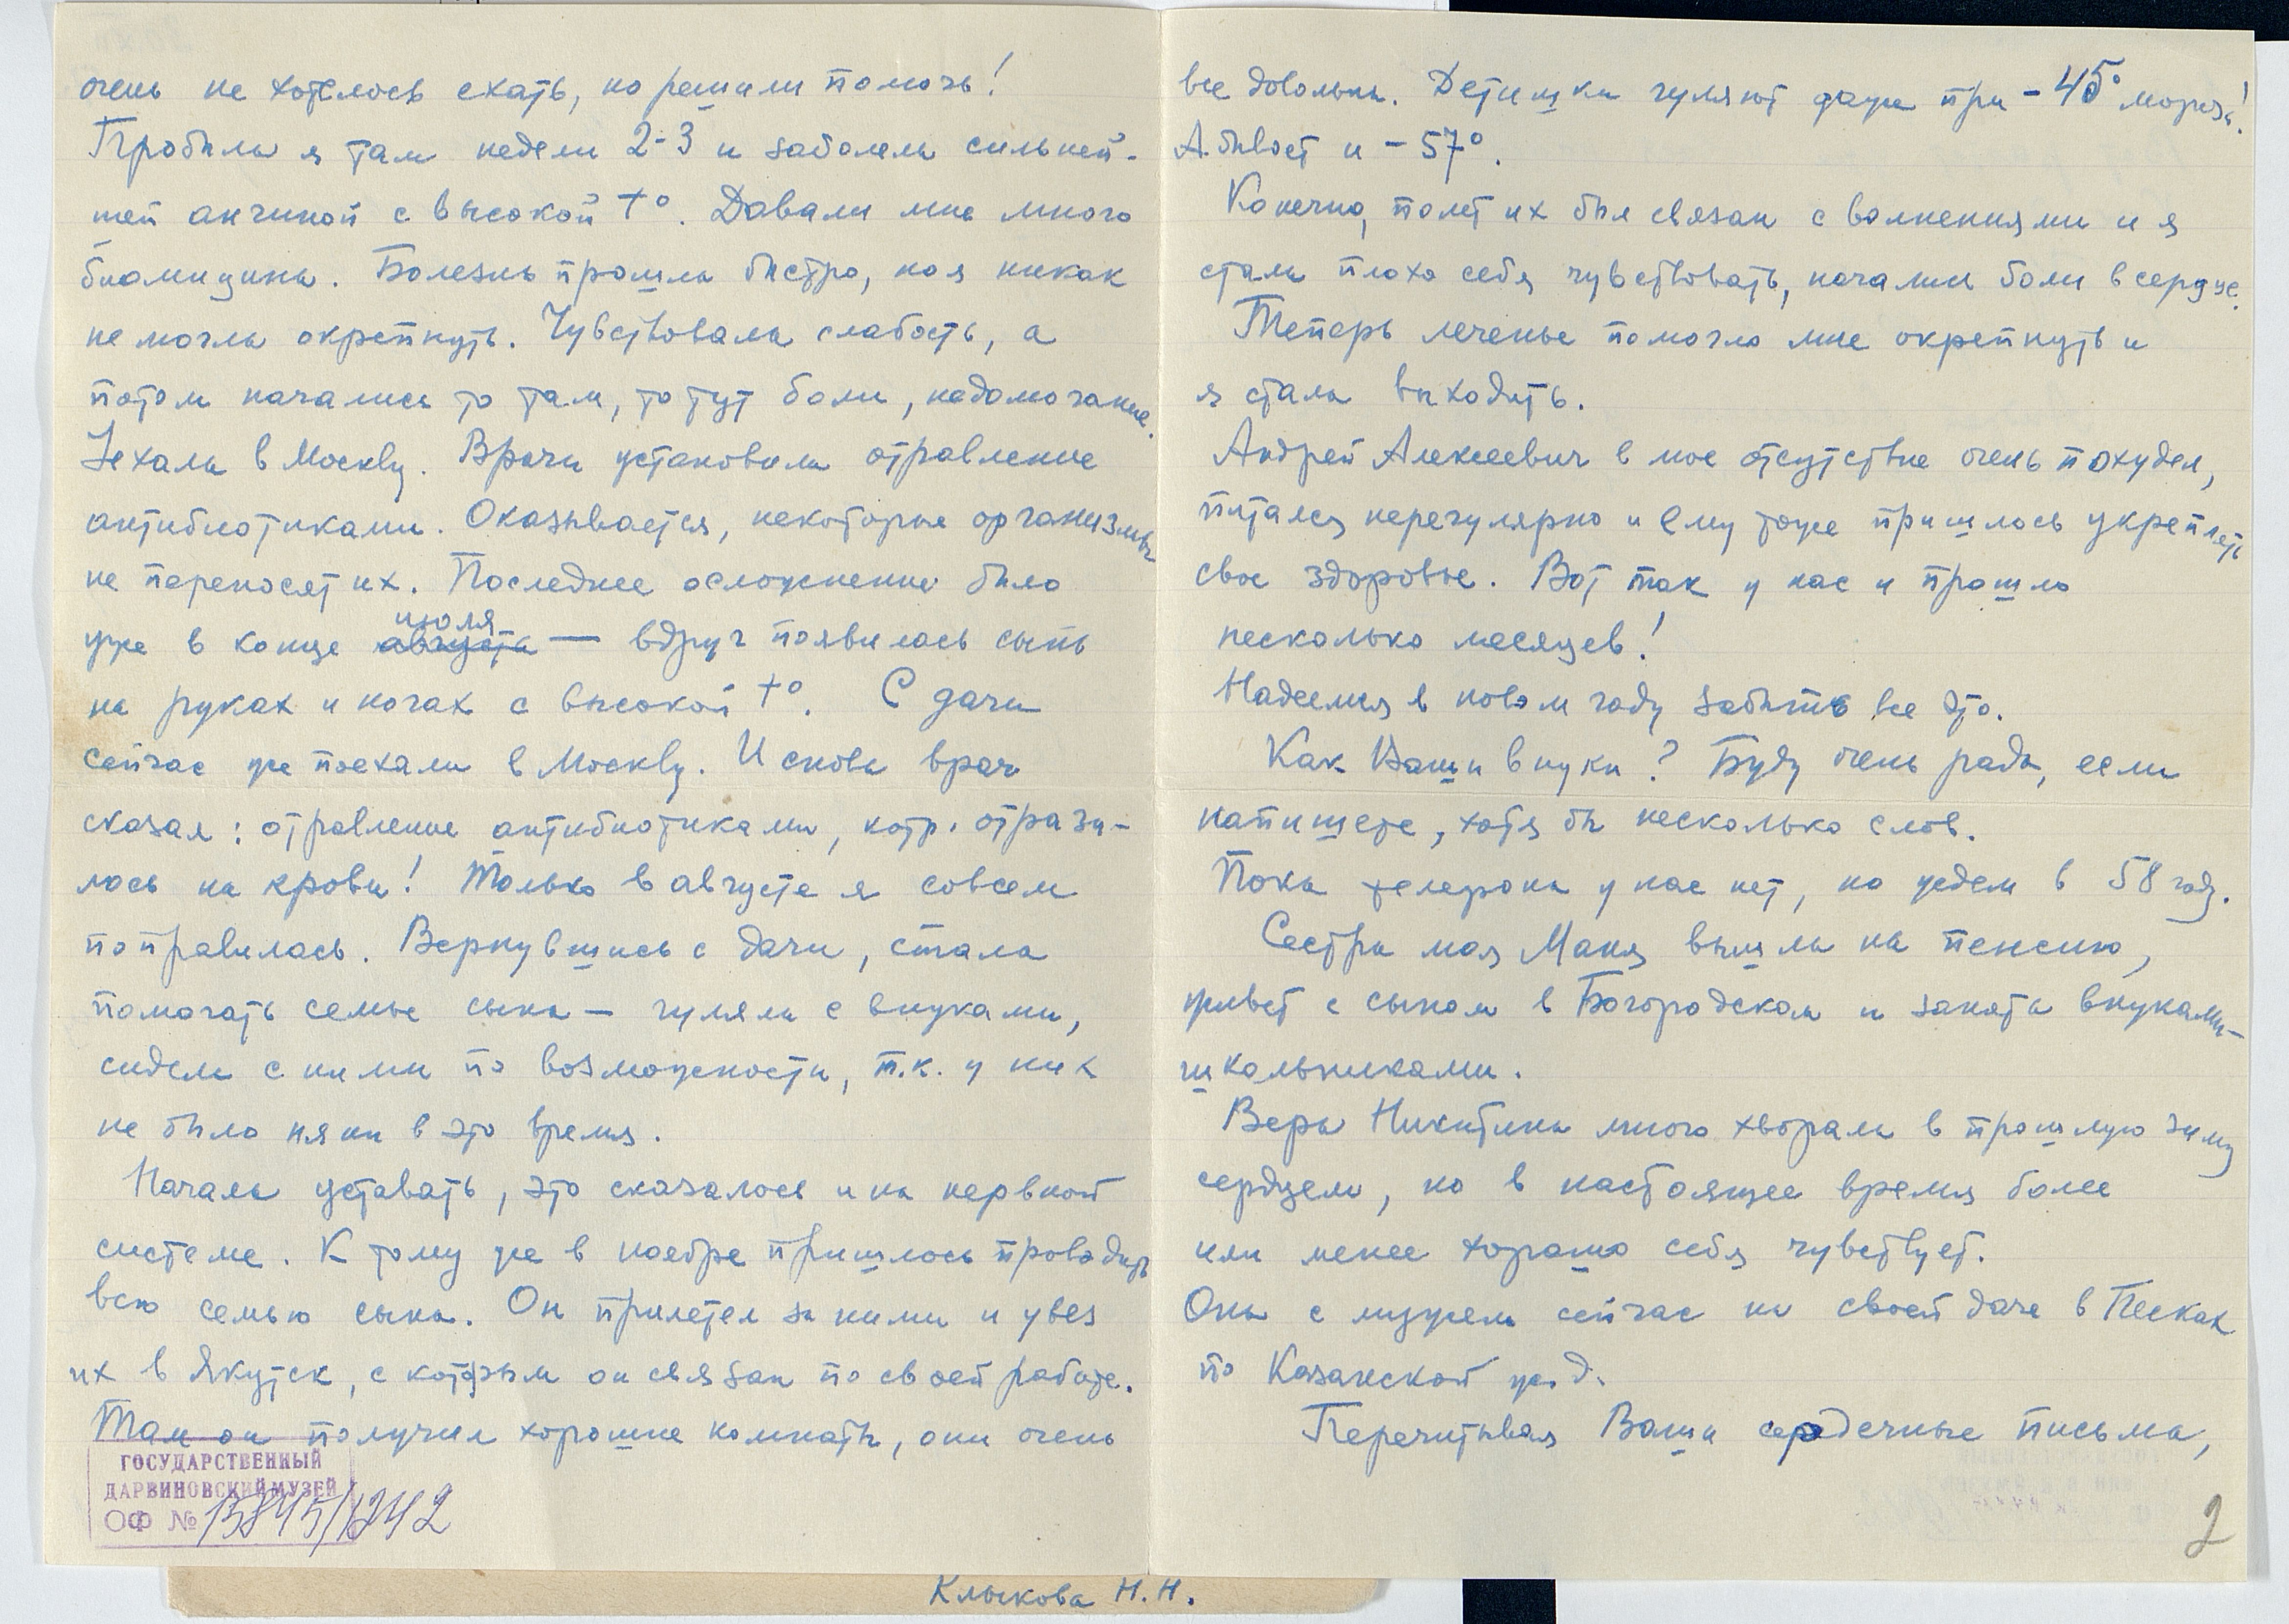 очень не хотелось ехать, но решили помочь!
Пробыла я там недели 2-3 и заболела сильней-
шей ангиной с высокой t°. Давали мне много
биомицина. Болезнь прошла быстро, но я никак
не могла окрепнуть. Чувствовала слабость, а
потом начались то там, то тут боли, недомогание.
Уехала в Москву. Врачи установили отравление
антибиотиками. Оказывается, некоторые организмы
не переносят их. Последнее осложнение было
июля
уже в конце августа — вдруг появилась сыпь
на руках и ногах с высокой t°. С дачи
сейчас же поехали в Москву. И снова врач
сказал: отравление антибиотиками, котр. отрази-
лось на крови! Только в августе я совсем
поправилась. Вернувшись с дачи, стала
помогать семье сына — гуляла с внуками,
сидела с ними по возможности, т.к. у них
не было няни в это время.
Начала уставать, это сказалось и на нервной
системе. К тому же в ноябре пришлось проводить
всю семью сына. Он прилетел за ними и увез
их в Якутск, с которым он связан по своей работе.
Там он получил хорошие комнаты, они очень
ГОСУДАРСТВЕННЫЙ
ДАРВИНОВСКИЙ МУЗЕЙ
ОФ № 15845/1242
все довольны. Детишки гуляют даже при -45° мороза!
А бывает и -57°.
Конечно, полет их был связан с волнениями и я
стала плохо себя чувствовать, начались боли в сердце.
Теперь леченье помогло мне окрепнуть и
я стала выходить.
Андрей Алексеевич в мое отсутствие очень похудел,
питался нерегулярно и ему тоже пришлось укреплять
свое здоровье. Вот так у нас и прошло
несколько месяцев!
Надеемся в новом году забыть все это.
Как Ваши внуки? Буду очень рада, если
напишете, хотя бы несколько слов.
Пока телефона у нас нет, но ждем в 58 году.
Сестра моя Маня вышла на пенсию,
живет с сыном в Богородском и занята внуками-
школьниками.
Вера Никитина много хворала в прошлую зиму
сердцем, но в настоящее время более
или менее хорошо себя чувствует.
Она с мужем сейчас на своей даче в Песках
по Казанской ж.д.
Перечитывая Ваши сердечные письма,
2
Клыкова Н.Н.